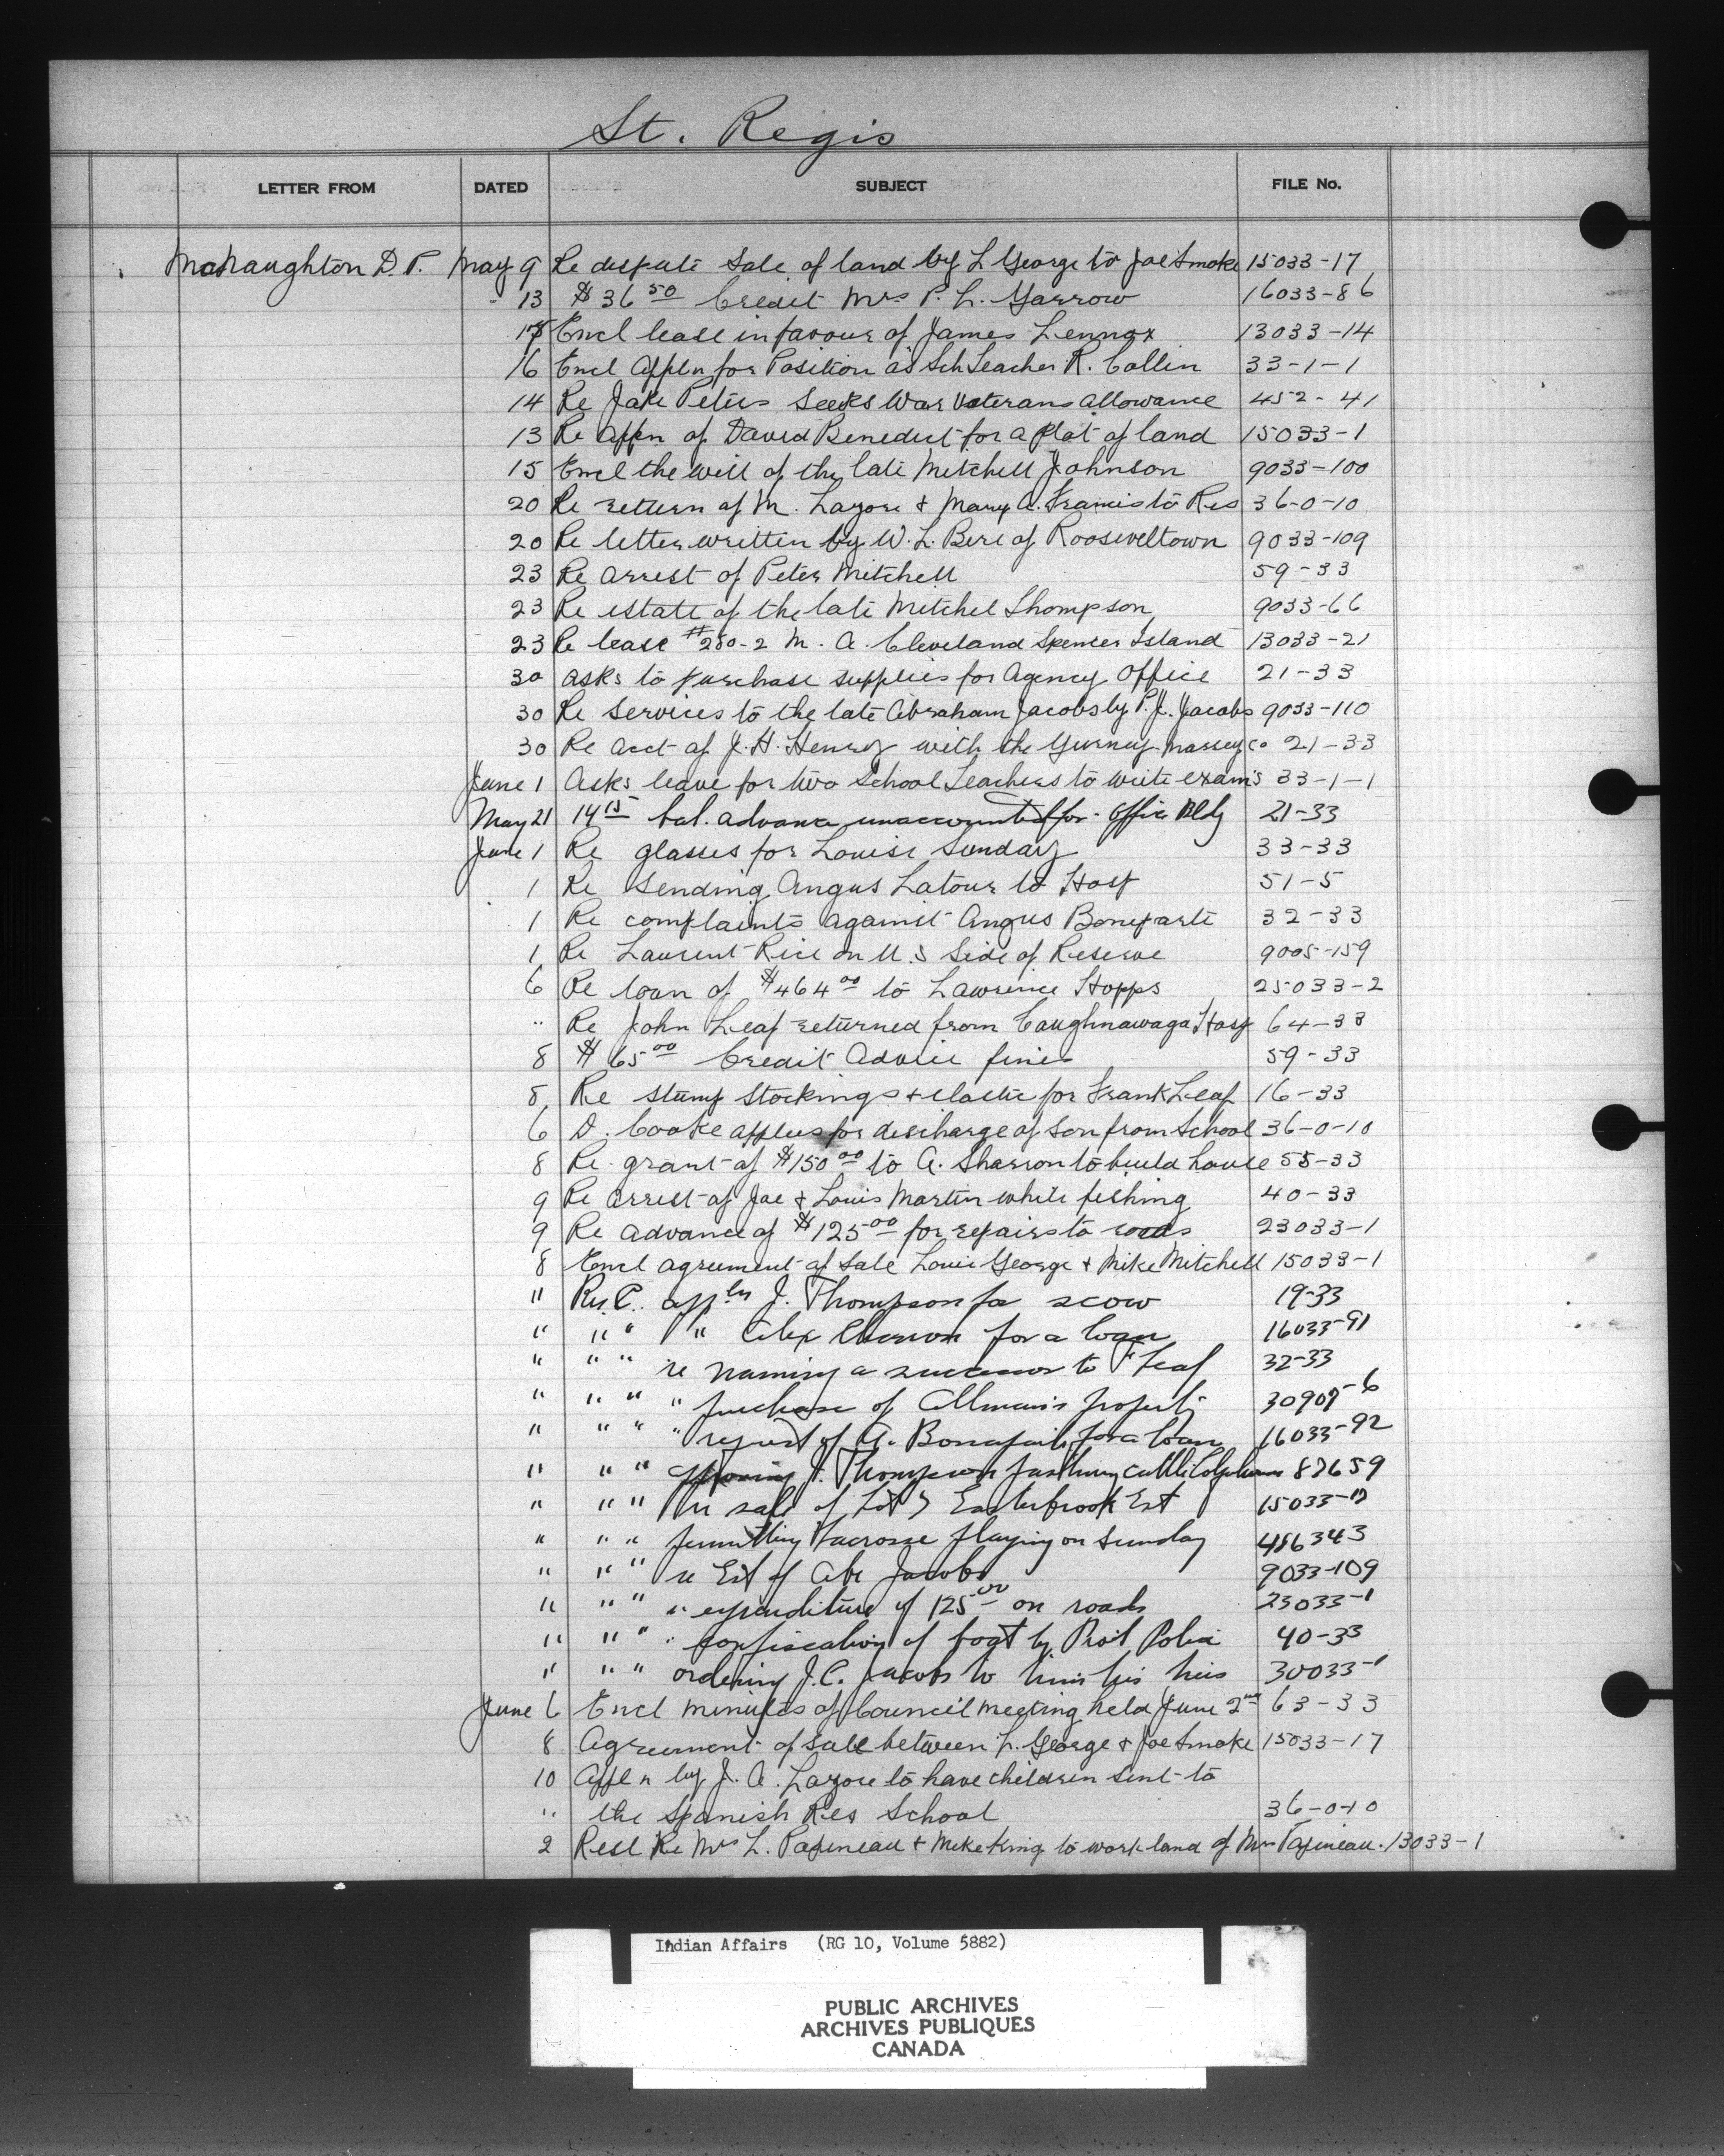 St. Regis
LETTER FROM DATED SUBJECT FILE No.
McNaughton D. P. May 9 Re dispute Sale of land by L George to Joe Smoke 15033-17
" 13 $36 50 Credit Mrs P. L. Garrow 16033-86
Encl lease in favour of James Lennox 13033-14
16 Encl Appln for Position as Sch Teacher R. Collin 33-1-1
14 Re Jake Peters Seeks War Veterans Allowance 452-41
13 Re Appn of David Benedict for a Plot of land 15033-1
15 Encl the will of the late Mitchell Johnson 9033-100
20 Re return of M. Lazore & Mary A. Francis to Res 36-0-10
20 Re letter written by W. L. Bere of Rooseveltown 9033-109
23 Re arrest of Peter Mitchell 59-33
23 Re estate of the late Mitchel Thompson 9033-66
23 Re lease #250-2 M. A. Cleveland Spencer Island 13033-21
30 asks to purchase supplies for Agency Office 21-33
30 Re Services to the late Abraham Jacobs by P. J. Jacobs 9033-110
30 Re acct of J. H. Henry with the Gurney-Massey Co 21-33
June 1 Asks leave for two School Teachers to write exam's 33-1-1
May 21 14 15 bal. advance unaccounted for - Office Bldg 21-33
June 1 Re glasses for Louise Sunday 33-33
1 Re Sending Angus Latour to Hosp 51-5
1 Re complaints against Angus Boneparte 32-33
1 Re Laurent Rice on U.S Side of Reserve 9005-159
6 Re loan of $464 00 to Lawrence Hopps 25033-2
" Re John Leaf returned from Caughnawaga Hosp 64-33
8 $65 00 Credit Advice fines 59-33
8 Re stump Stockings & elastic for Frank Leaf 16-33
6 D. Cooke applies for discharge of Son from School 36-0-10
8 Re grant of $150 00 to A. Sharron to build house 55-33
9 Re arrest of Joe & Louis Martin while fishing 40-33
9 Re advance of $125 00 for repairs to roads 23033-1
8 Encl agreement of Sale Louis George & Mike Mitchell 15033-1
" appln J. Thompson for scow 19-33
" " " " Alex for a loan 16033-91
" " " re naming a successor to F Leaf 32-33
" " " " purchase of property
" " " " request of A. for a loan 16033-92
" " " J. Thompson cattle 87659
" " " re sale of Lot Easterbrook Est
" " " permitting lacrosse playing on Sunday 486343
" " " re Est of Abe Jacobs 9033-109
" " " " expenditure of 125 00 on roads 23033-1
" " " " confiscation of boat by Prov Police 40-33
" " " ordering J.C. Jacobs to 30033-1
June 6 Encl minutes of Council meeting held June 2nd 63-33
8 Agreement of Sale between L. George & Joe Smoke 15033-17
10 Appln by J. A. Lazore to have children sent to
" the Spanish Res School 36-0-10
2 Resl Re Mrs L. Papineau & Mike King to work land of Mrs Papineau. 13033-1
Indian Affairs (RG 10, Volume 5882)
PUBLIC ARCHIVES
ARCHIVES PUBLIQUES
CANADA